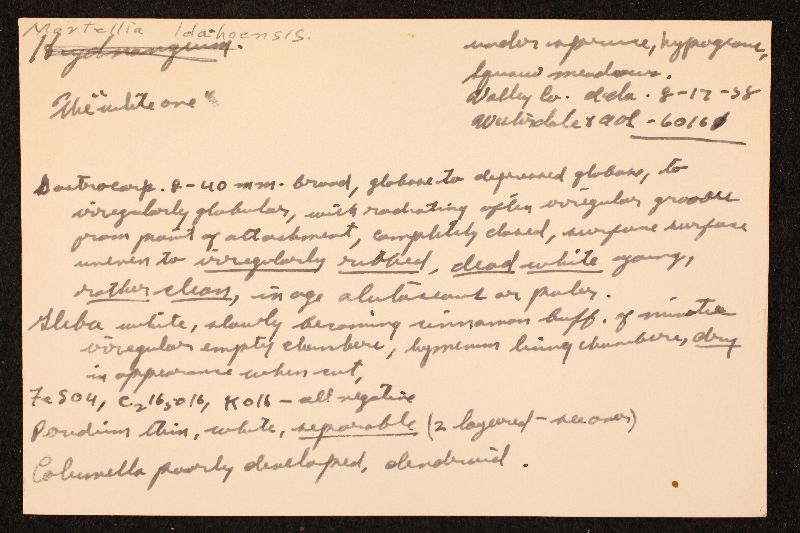 Martellia Idahoensis.
Hydnangium.
The "white one"
under spruce, hypogeous,
Squaw meadows.
Valley Co. Ida. 8-17-58
Trueblood - 6016
Gastrocarp. 8-40 mm. broad, globose to depressed globose, to
irregularly globular, with radiating often irregular grooves
from point of attachment, completely closed, surface surface
uneven to irregularly ribbed, dead white young,
rather clean, in age alutaceous or paler.
Gleba white, slowly becoming cinnamon buff. of minute
irregular empty chambers, hymenium lining chambers, dry
in appearance when cut,
FeSO4, C2H5OH, KOH - all negative
Peridium thin, white, separable (2 layered -
Columella poorly developed, dendroid.